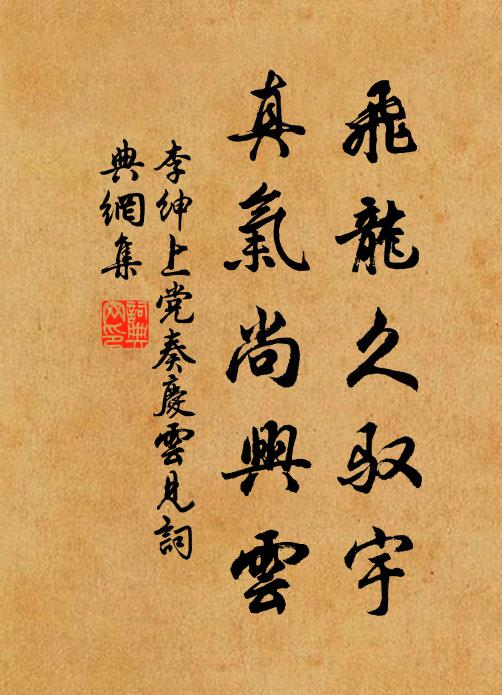 飛龍久驭宇
真氣尚興雲
李紳上党奏慶雲見詞
典網集
詞典
网印